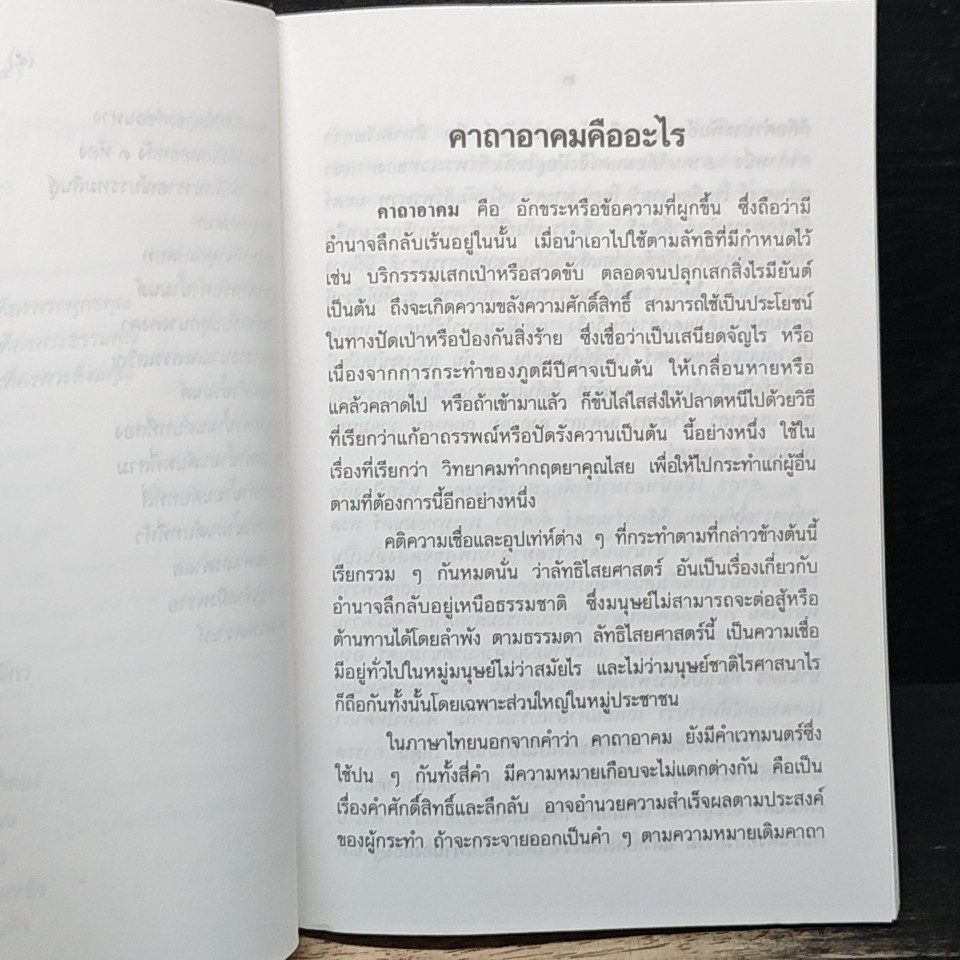 คาถาอาคมคืออะไร
คาถาอาคม คือ อักขระหรือข้อความที่ผูกขึ้น ซึ่งถือว่ามี
อำนาจลึกลับเร้นอยู่ในนั้น เมื่อนำเอาไปใช้ตามลัทธิที่มีกำหนดไว้
เช่น บริกรรรมเสกเป่าหรือสวดขับ ตลอดจนปลุกเสกสิ่งไรมียันต์
เป็นต้น ถึงจะเกิดความขลังความศักดิ์สิทธิ์ สามารถใช้เป็นประโยชน์
ในทางปัดเป่าหรือป้องกันสิ่งร้าย ซึ่งเชื่อว่าเป็นเสนียดจัญไร หรือ
เนื่องจากการกระทำของภูตผีปีศาจเป็นต้น ให้เกลื่อนหายหรือ
แคล้วคลาดไป หรือถ้าเข้ามาแล้ว ก็ขับไล่ไสส่งให้ปลาตหนีไปด้วยวิธี
ที่เรียกว่าแก้อาถรรพณ์หรือปัดรังควานเป็นต้น นี้อย่างหนึ่ง ใช้ใน
เรื่องที่เรียกว่า วิทยาคมทำกฤตยาคุณไสย เพื่อให้ไปกระทำแก่ผู้อื่น
ตามที่ต้องการนี้อีกอย่างหนึ่ง
คติความเชื่อและอุปเท่ห์ต่าง ๆ ที่กระทำตามที่กล่าวข้างต้นนี้
เรียกรวม ๆ กันหมดนั่น ว่าลัทธิไสยศาสตร์ อันเป็นเรื่องเกี่ยวกับ
อำนาจลึกลับอยู่เหนือธรรมชาติ ซึ่งมนุษย์ไม่สามารถจะต่อสู้หรือ
ต้านทานได้โดยลำพัง ตามธรรมดา ลัทธิไสยศาสตร์นี้ เป็นความเชื่อ
มีอยู่ทั่วไปในหมู่มนุษย์ไม่ว่าสมัยไร และไม่ว่ามนุษย์ชาติไรศาสนาไร
ก็ถือกันทั้งนั้นโดยเฉพาะส่วนใหญ่ในหมู่ประชาชน
ในภาษาไทยนอกจากคำว่า คาถาอาคม ยังมีคำเวทมนตร์ซึ่ง
ใช้ปน ๆ กันทั้งสี่คำ มีความหมายเกือบจะไม่แตกต่างกัน คือเป็น
เรื่องคำศักดิ์สิทธิ์และลึกลับ อาจอำนวยความสำเร็จผลตามประสงค์
ของผู้กระทำ ถ้าจะกระจายออกเป็นคำ ๆ ตามความหมายเดิมคาถา